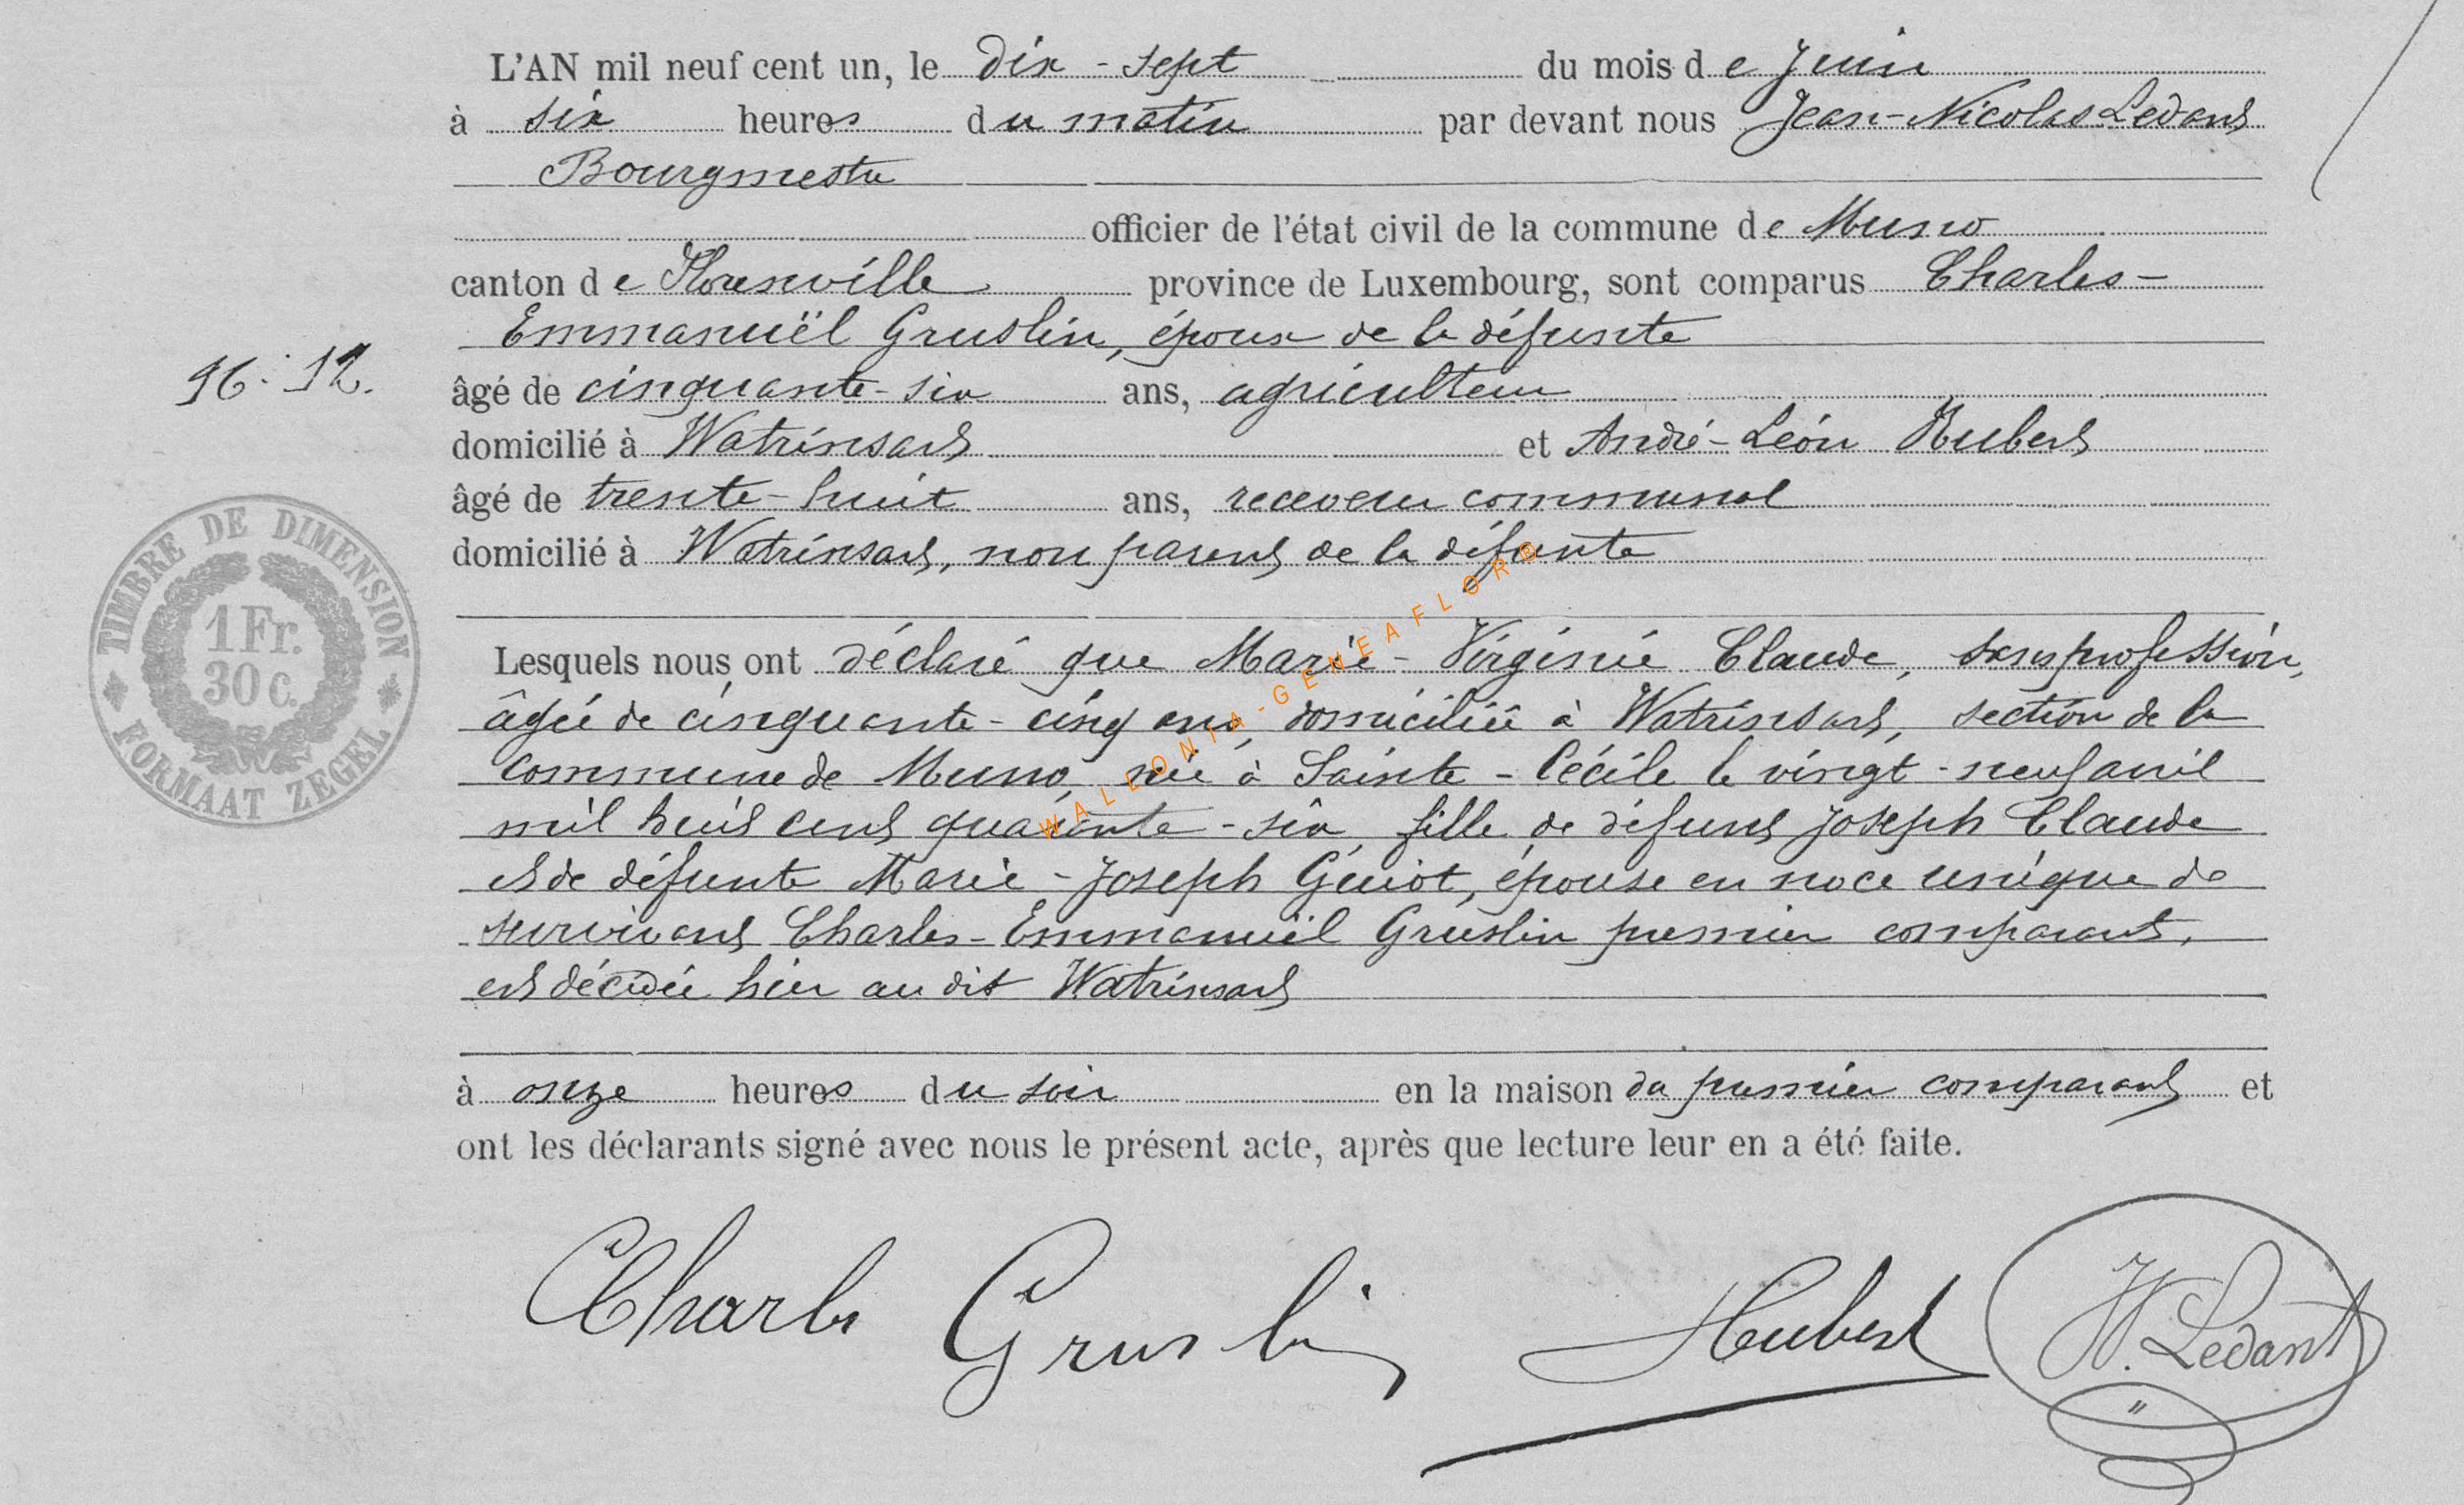 L'AN mil neuf cent un, le dix-sept du mois de Juin
à six heures du matin par devant nous Jean-Nicolas Ledant
Bourgmestre
officier de l'état civil de la commune de Muno
canton de Florenville province de Luxembourg, sont comparus Charles-
Emmanuël Gruslin, époux de la défunte
96. 12.
âgé de cinquante-six ans, agriculteur
domicilié à Watrinsart et André-Léon Hubert
âgé de trente-huit ans, receveur communal
domicilié à Watrinsart, non parent de la défunte
TIMBRE DE DIMENSION
1 Fr.
30 c.
FORMAAT ZEGEL
Lesquels nous ont déclaré que Marie-Virginie Claude, sans profession,
âgée de cinquante-cinq ans, domiciliée à Watrinsart, section de la
commune de Muno, née à Sainte-Cécile le vingt-neuf avril
mil huit cent quarante-six, fille de défunt Joseph Claude
et de défunte Marie-Joseph Guiot, épouse en noce unique de
survivant Charles-Emmanuël Gruslin premier comparant,
est décédée hier au dit Watrinsart
à onze heures du soir en la maison du premier comparant et
ont les déclarants signé avec nous le présent acte, après que lecture leur en a été faite.
Charles Gruslin Hubert N. Ledant
WALLONIA-GENEAFLORB